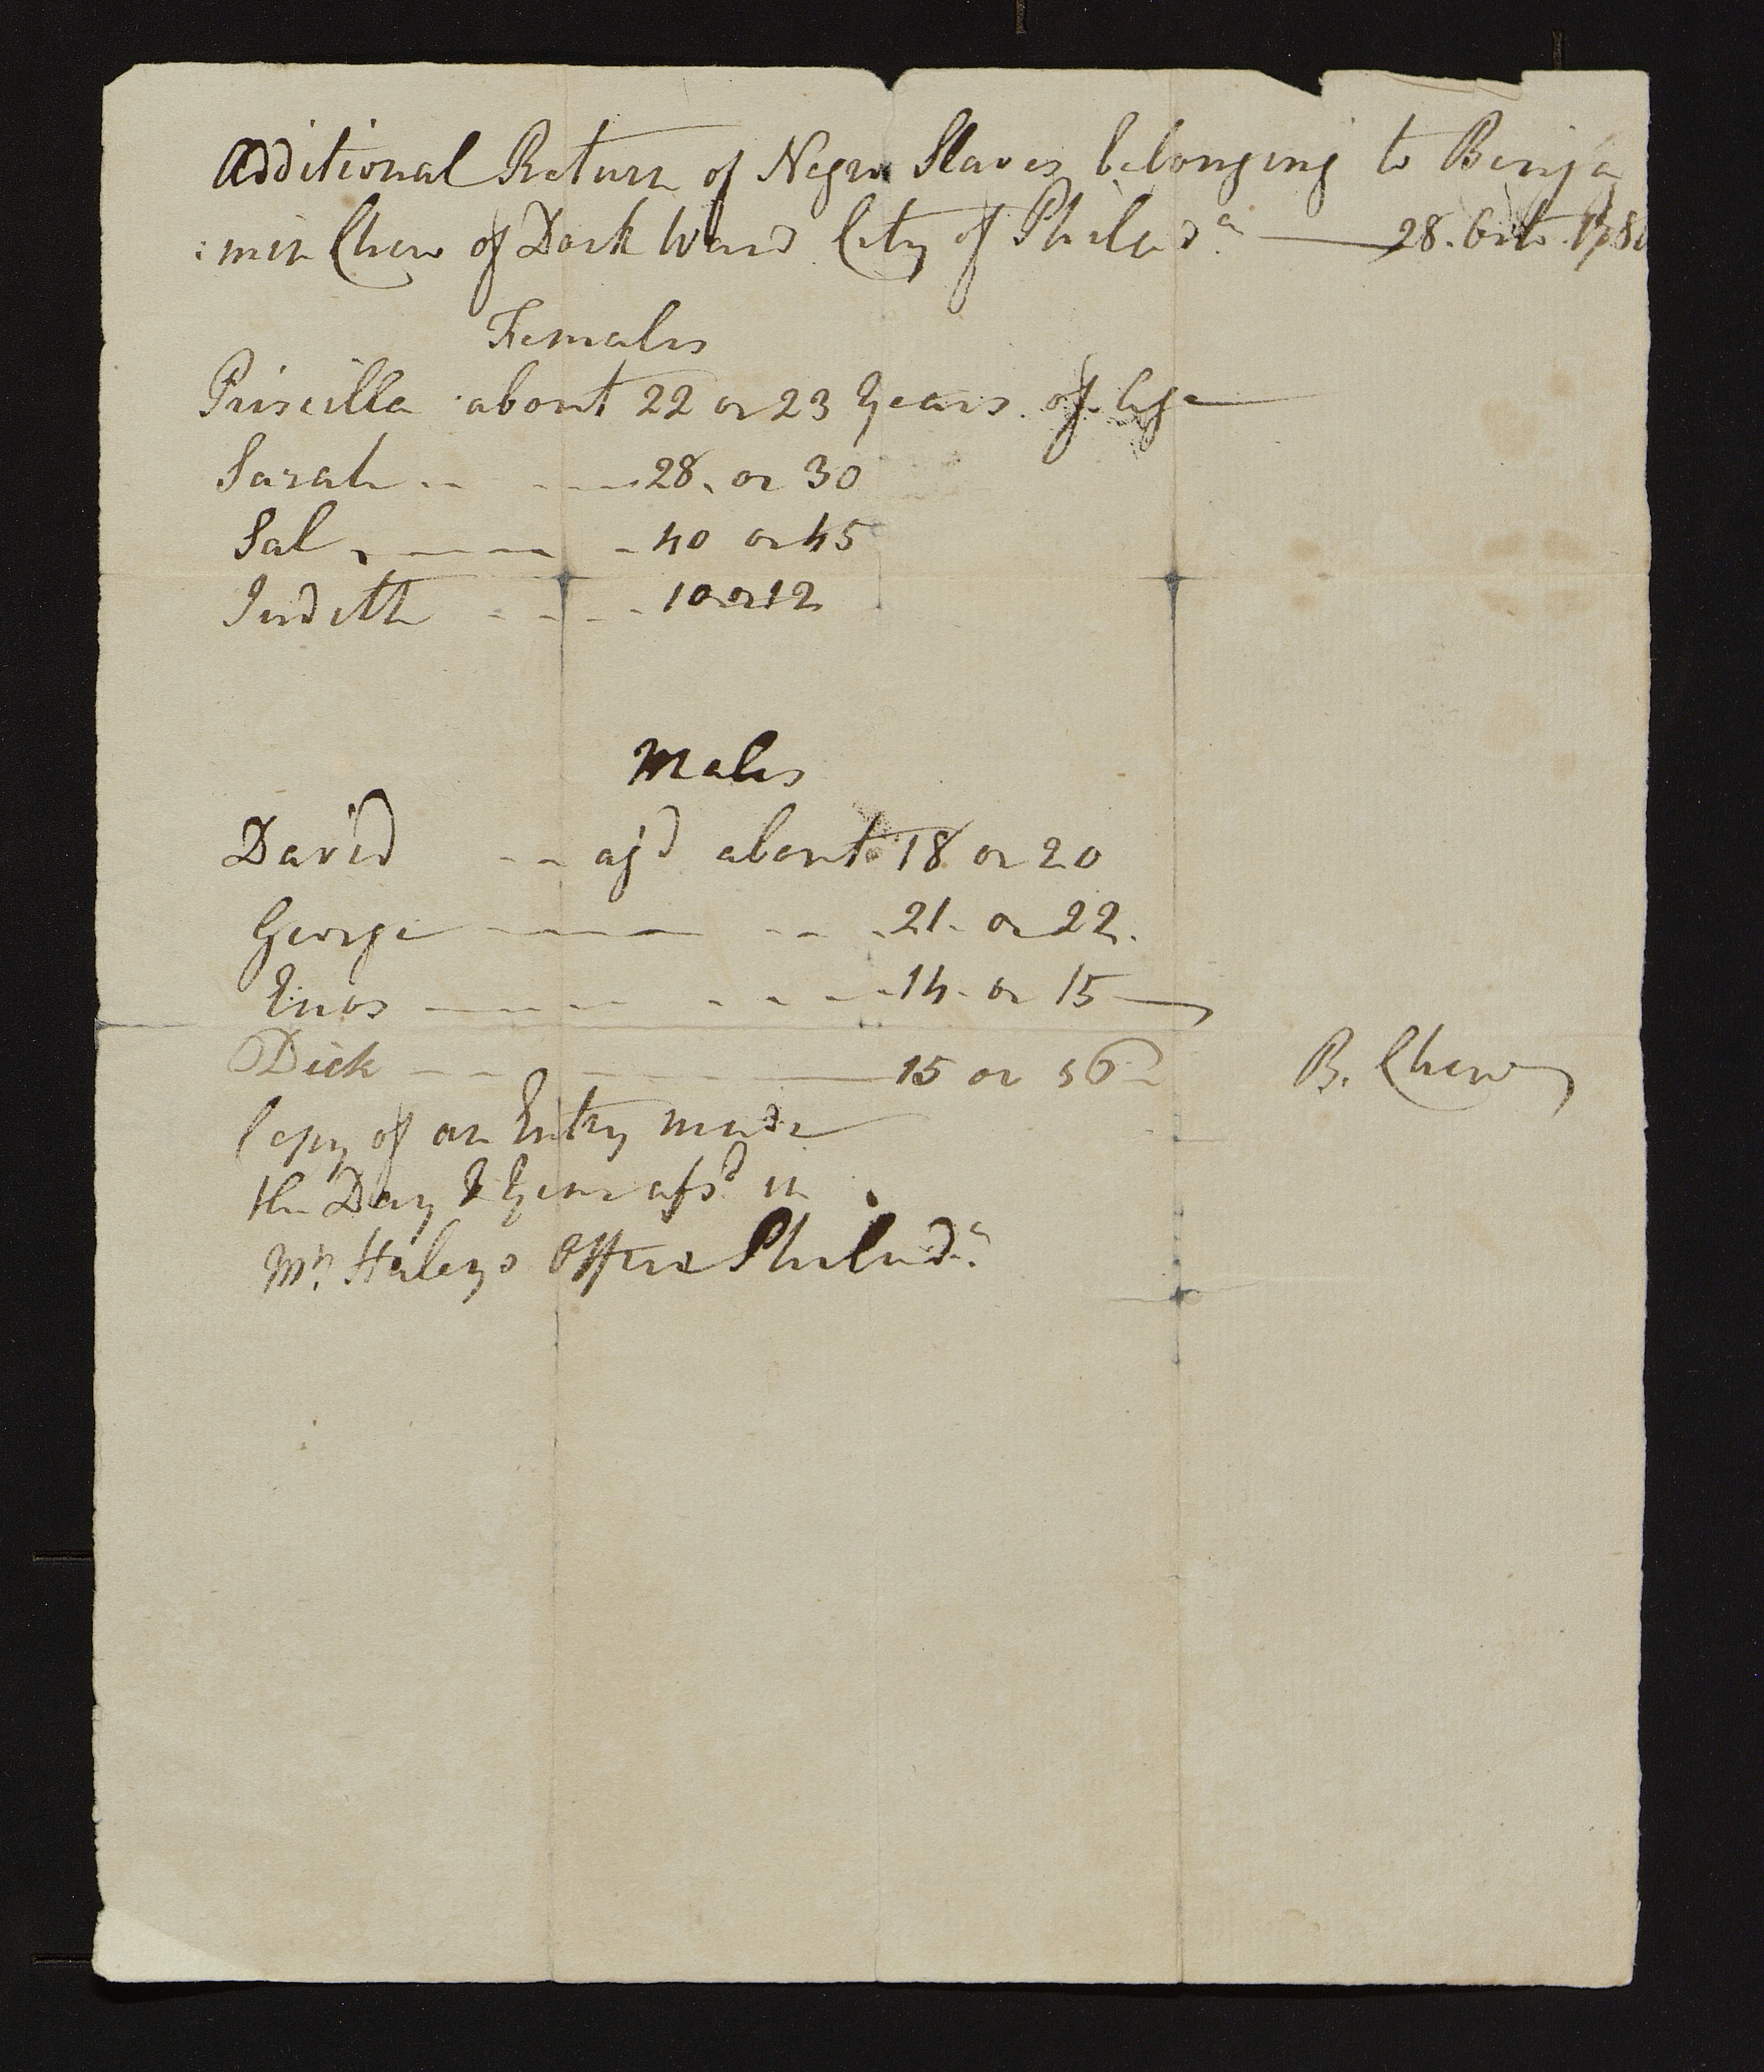 Additional Return of Negro Slaves belonging to Benja
:min Chew of Dock Ward City of Philad.a — 28. Octo. 178
Females
Priscilla about 22 or 23 Years of Age
Sarah - - - - 28. or 30
Sal - - - - 40 or 45
Judith - - - - 10 or 12
Males
David - - ag'd about 18 or 20
George - - - - 21. or 22.
Enos - - - - 14. or 15
Dick - - - - 15 or 16
B. Chew
Copy of an Entry made
the Day & Year afs.d in
Mr. Haleys Office Philad.a